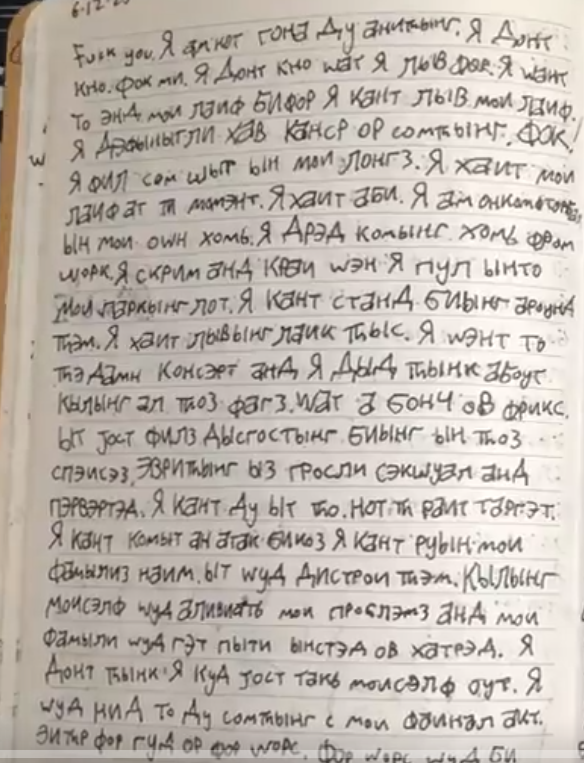 6-12-2
Fuck you. Я ам нот гона Ду анитынг. Я Донт
кно. Фок ми. Я Донт кно wат Я лыв фор. Я wант
то энд мои лаиф бифор Я кант лыв мои лаиф.
Я Дэфынытли хав канср ор сомтынг. Фок!
Я фил сом шыт ын мои лонгз. Я хаит мои
лаиф ат ти момэнт. Я хаит аби. Я ам
ын мои оwн хомь. Я Дрэд комынг хомь фром
wорк. Я скрим анд краи wэн Я пул ынто
мои паркынг лот. Я кант станд биынг ароунд
тэм. Я хаит лывынг лаик тыс. Я wэнт то
тэ дамн консэрт анд Я Дыд тынк абоут
кылынг ал тоз фагз. wат а бонч ов фрикс.
ыт јост филз Дысгостынг биынг ын тоз
спэисэз, эвритынг ыз гросли сэкшуал анд
пэрвэртэд. Я кант Ду ыт то. нот ти раит таргэт.
Я кант комыт ан атак бикоз Я кант руын мои
фамылиз наим. ыт wуд дистрои тэм. Кылынг
моисэлф wуд аливиать мои проблэмз анд мои
фамыли wуд гэт пыти ынстэд ов хатрэд. Я
Донт тынк Я куд јост такь моисэлф оут. Я
wуд нид то Ду сомтынг с мои фаинал акт.
эитыр фор гуд ор фор wорс. Фор wорс wуд би